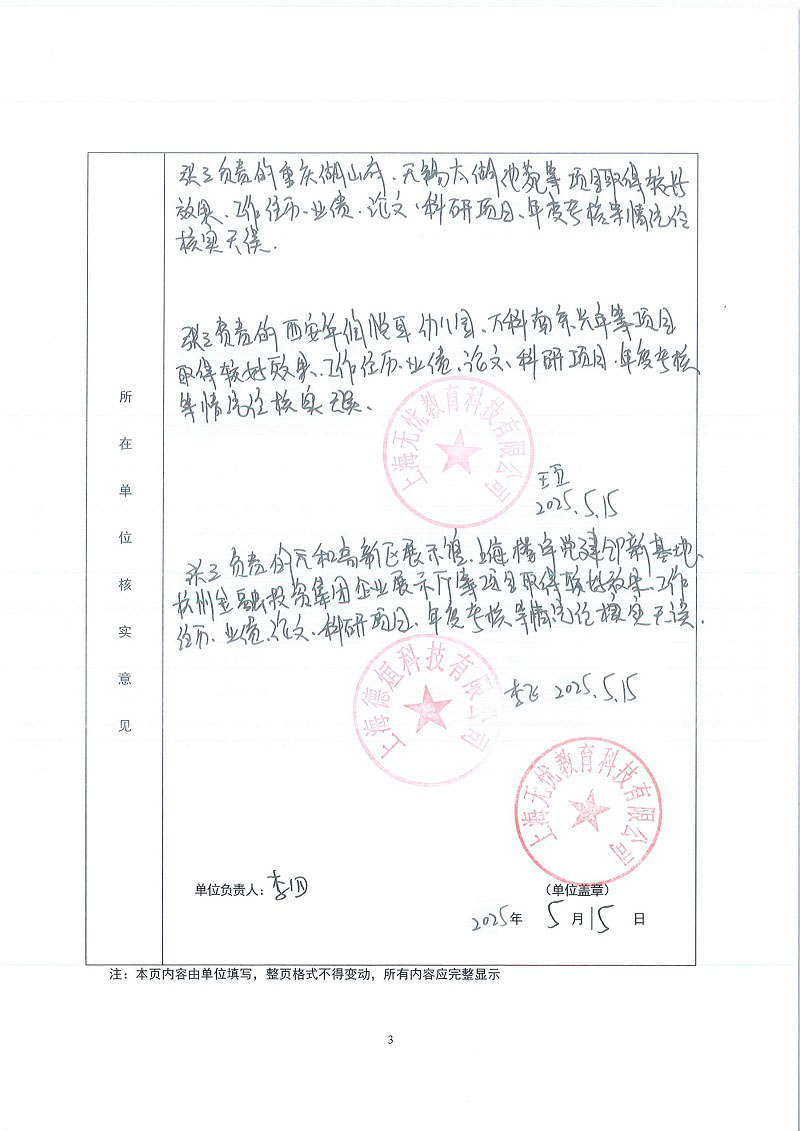 张三负责的重庆湖山府、无锡太湖 苑等项目取得较好
效果、工作经历、业绩、论文、科研项目、年度考核等情况经
核实无误.
张三负责的西安 幼儿园、万科南京 等项目
取得较好效果、工作经历、业绩、论文、科研项目、年度考核
等情况经核实无误、
上海无忧教育科技有限公司
2025.5.15
张三负责的 高新区展示馆、上海 党建创新基地、
杭州金融投资集团企业展示厅等项目取得较好效果、工作
经历、业绩、论文、科研项目、年度考核等情况经核实无误.
上海德烜科技有限公司
李飞 2025.5.15
上海无忧教育科技有限公司
所在单位核实意见
单位负责人：李四
（单位盖章）
2025年 5月15日
注：本页内容由单位填写，整页格式不得变动，所有内容应完整显示
3